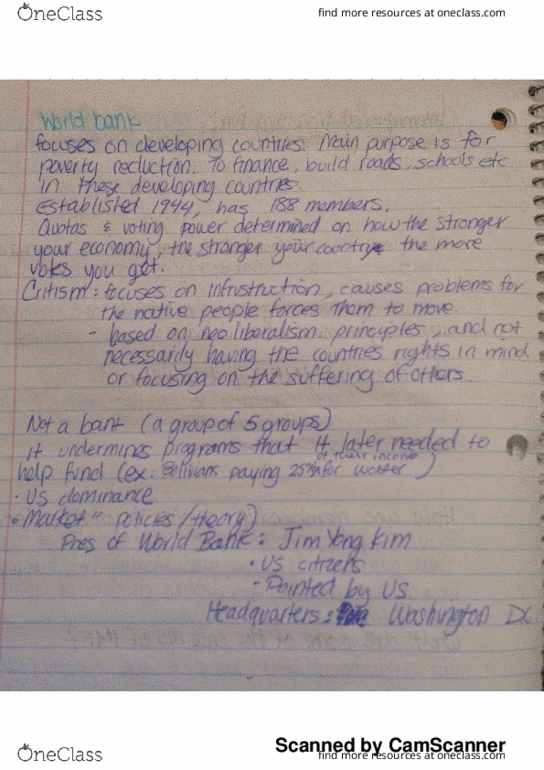 OneClass
find more resources at oneclass.com
World bank
focuses on developing countries. Main purpose is for
poverty reduction. To finance, build roads, schools etc
in these developing countries.
established 1944, has 188 members.
Quotas & voting power determined on how the stronger
your economy, the stronger your country the more
votes you get.
Critism: focuses on infrustruction, causes problems for
the native people forces them to move.
- based on neo liberalism principles, and not
necessarily having the countries rights in mind
or focusing on the suffering of others.
Not a bank (a group of 5 groups)
It undermines programs that it later needed to
of their income
help fund (ex. Bolivians paying 25% for water)
• US dominance
• Market" policies/theory)
Pres of World Bank: Jim Yong Kim
• US citizens
- Pointed by US
Headquarters: Washington DC
Scanned by CamScanner
OneClass
find more resources at oneclass.com